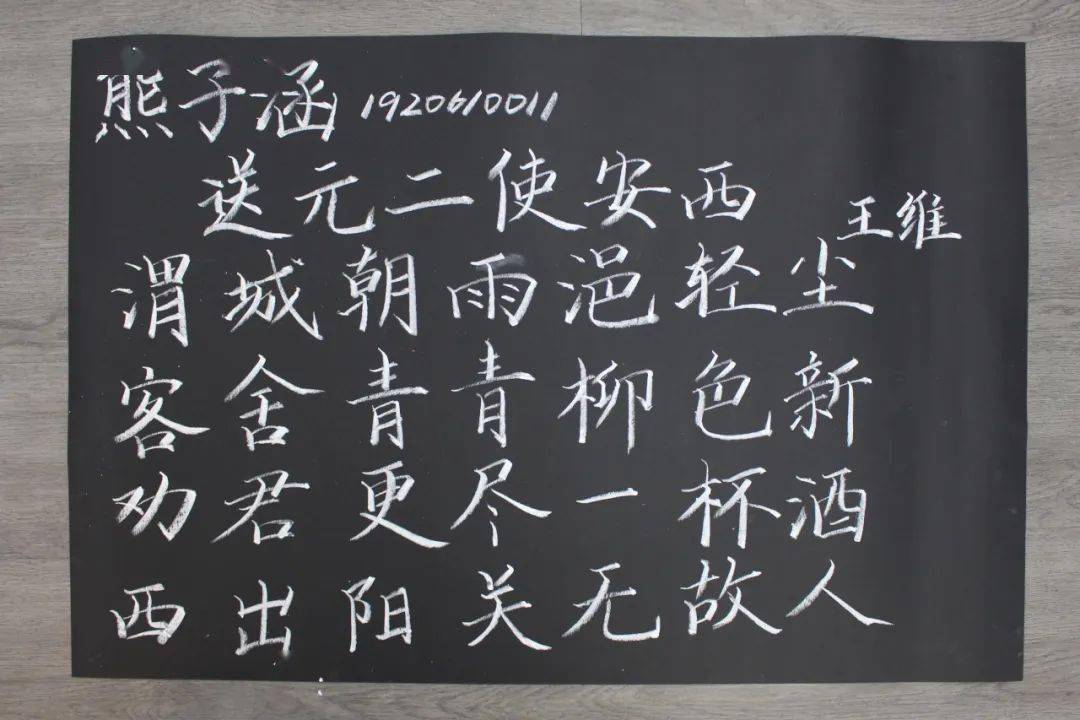 熊子涵 1920610011
送元二使安西 王维
渭城朝雨浥轻尘
客舍青青柳色新
劝君更尽一杯酒
西出阳关无故人